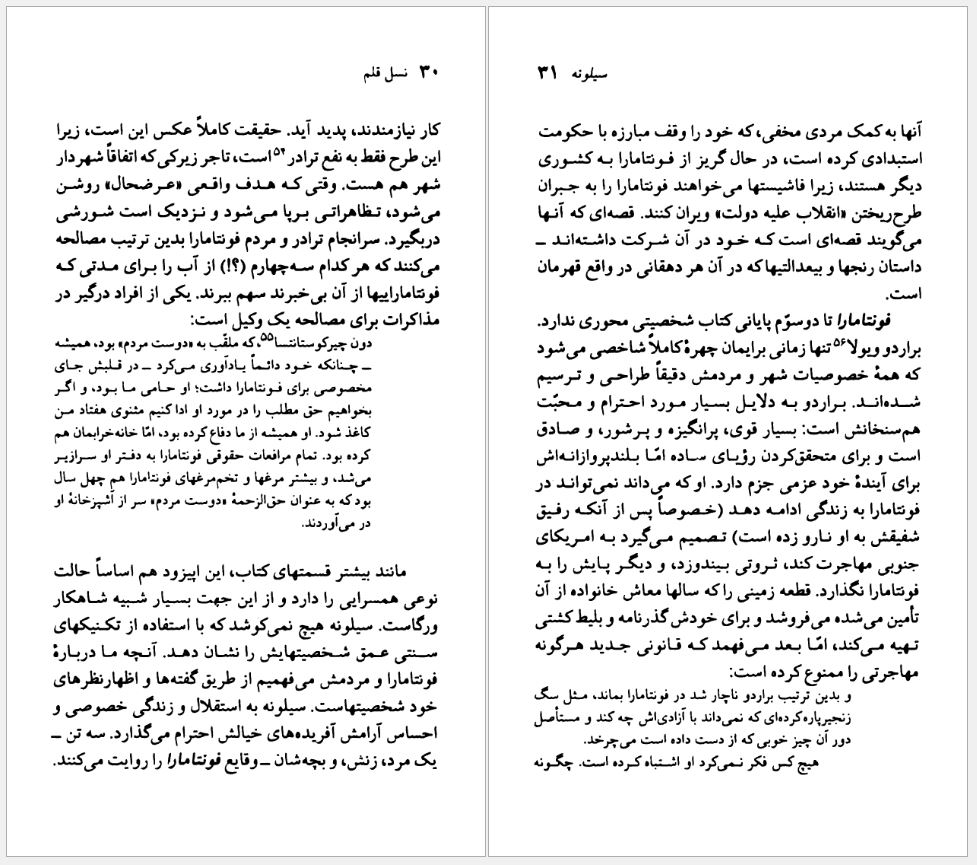 ۳۰ نسل قلم
کار نیازمندند، پدید آید. حقیقت کاملاً عکس این است، زیرا
این طرح فقط به نفع ترادر۵۴ است، تاجر زیرکی که اتفاقاً شهردار
شهر هم هست. وقتی که هدف واقعی «عرضحال» روشن
می‌شود، تظاهراتی برپا می‌شود و نزدیک است شورشی
دربگیرد. سرانجام ترادر و مردم فونتامارا بدین ترتیب مصالحه
می‌کنند که هر کدام سه‌چهارم (؟!) از آب را برای مدتی که
فونتاماراییها از آن بی‌خبرند سهم ببرند. یکی از افراد درگیر در
مذاکرات برای مصالحه یک وکیل است:
دون چیرکوستانتسا۵۵، که ملقّب به «دوست مردم» بود، همیشه
ـ چنانکه خود دائماً یادآوری می‌کرد ـ در قلبش جای
مخصوصی برای فونتامارا داشت؛ او حامی ما بود، و اگر
بخواهیم حق مطلب را در مورد او ادا کنیم مثنوی هفتاد من
کاغذ شود. او همیشه از ما دفاع کرده بود، امّا خانه‌خرابمان هم
کرده بود. تمام مرافعات حقوقی فونتامارا به دفتر او سرازیر
می‌شد، و بیشتر مرغها و تخم‌مرغهای فونتامارا هم چهل سال
بود که به عنوان حق‌الزحمهٔ «دوست مردم» سر از آشپزخانهٔ او
در می‌آوردند.
مانند بیشتر قسمتهای کتاب، این اپیزود هم اساساً حالت
نوعی همسرایی را دارد و از این جهت بسیار شبیه شاهکار
ورگاست. سیلونه هیچ نمی‌کوشد که با استفاده از تکنیکهای
سنتی عمق شخصیتهایش را نشان دهد. آنچه ما دربارهٔ
فونتامارا و مردمش می‌فهمیم از طریق گفته‌ها و اظهارنظرهای
خود شخصیتهاست. سیلونه به استقلال و زندگی خصوصی و
احساس آرامش آفریده‌های خیالش احترام می‌گذارد. سه تن ـ
یک مرد، زنش، و بچه‌شان ـ وقایع فونتامارا را روایت می‌کنند.
سیلونه ۳۱
آنها به کمک مردی مخفی، که خود را وقف مبارزه با حکومت
استبدادی کرده است، در حال گریز از فونتامارا به کشوری
دیگر هستند، زیرا فاشیستها می‌خواهند فونتامارا را به جبران
طرح‌ریختن «انقلاب علیه دولت» ویران کنند. قصه‌ای که آنها
می‌گویند قصه‌ای است که خود در آن شرکت داشته‌اند ـ
داستان رنجها و بیعدالتیها که در آن هر دهقانی در واقع قهرمان
است.
فونتامارا تا دوسوّم پایانی کتاب شخصیتی محوری ندارد.
براردو ویولا۵۶ تنها زمانی برایمان چهرهٔ کاملاً شاخصی می‌شود
که همهٔ خصوصیات شهر و مردمش دقیقاً طراحی و ترسیم
شده‌اند. براردو به دلایل بسیار مورد احترام و محبّت
هم‌سنخانش است: بسیار قوی، پرانگیزه و پرشور، و صادق
است و برای متحقق‌کردن رؤیای ساده امّا بلندپروازانه‌اش
برای آیندهٔ خود عزمی جزم دارد. او که می‌داند نمی‌تواند در
فونتامارا به زندگی ادامه دهد (خصوصاً پس از آنکه رفیق
شفیقش به او نارو زده است) تصمیم می‌گیرد به امریکای
جنوبی مهاجرت کند، ثروتی بیندوزد، و دیگر پایش را به
فونتامارا نگذارد. قطعه زمینی را که سالها معاش خانواده از آن
تأمین می‌شده می‌فروشد و برای خودش گذرنامه و بلیط کشتی
تهیه می‌کند، امّا بعد می‌فهمد که قانونی جدید هرگونه
مهاجرتی را ممنوع کرده است:
و بدین ترتیب براردو ناچار شد در فونتامارا بماند، مثل سگ
زنجیرپاره‌کرده‌ای که نمی‌داند با آزادی‌اش چه کند و مستأصل
دور آن چیز خوبی که از دست داده است می‌چرخد.
هیچ کس فکر نمی‌کرد او اشتباه کرده است. چگونه